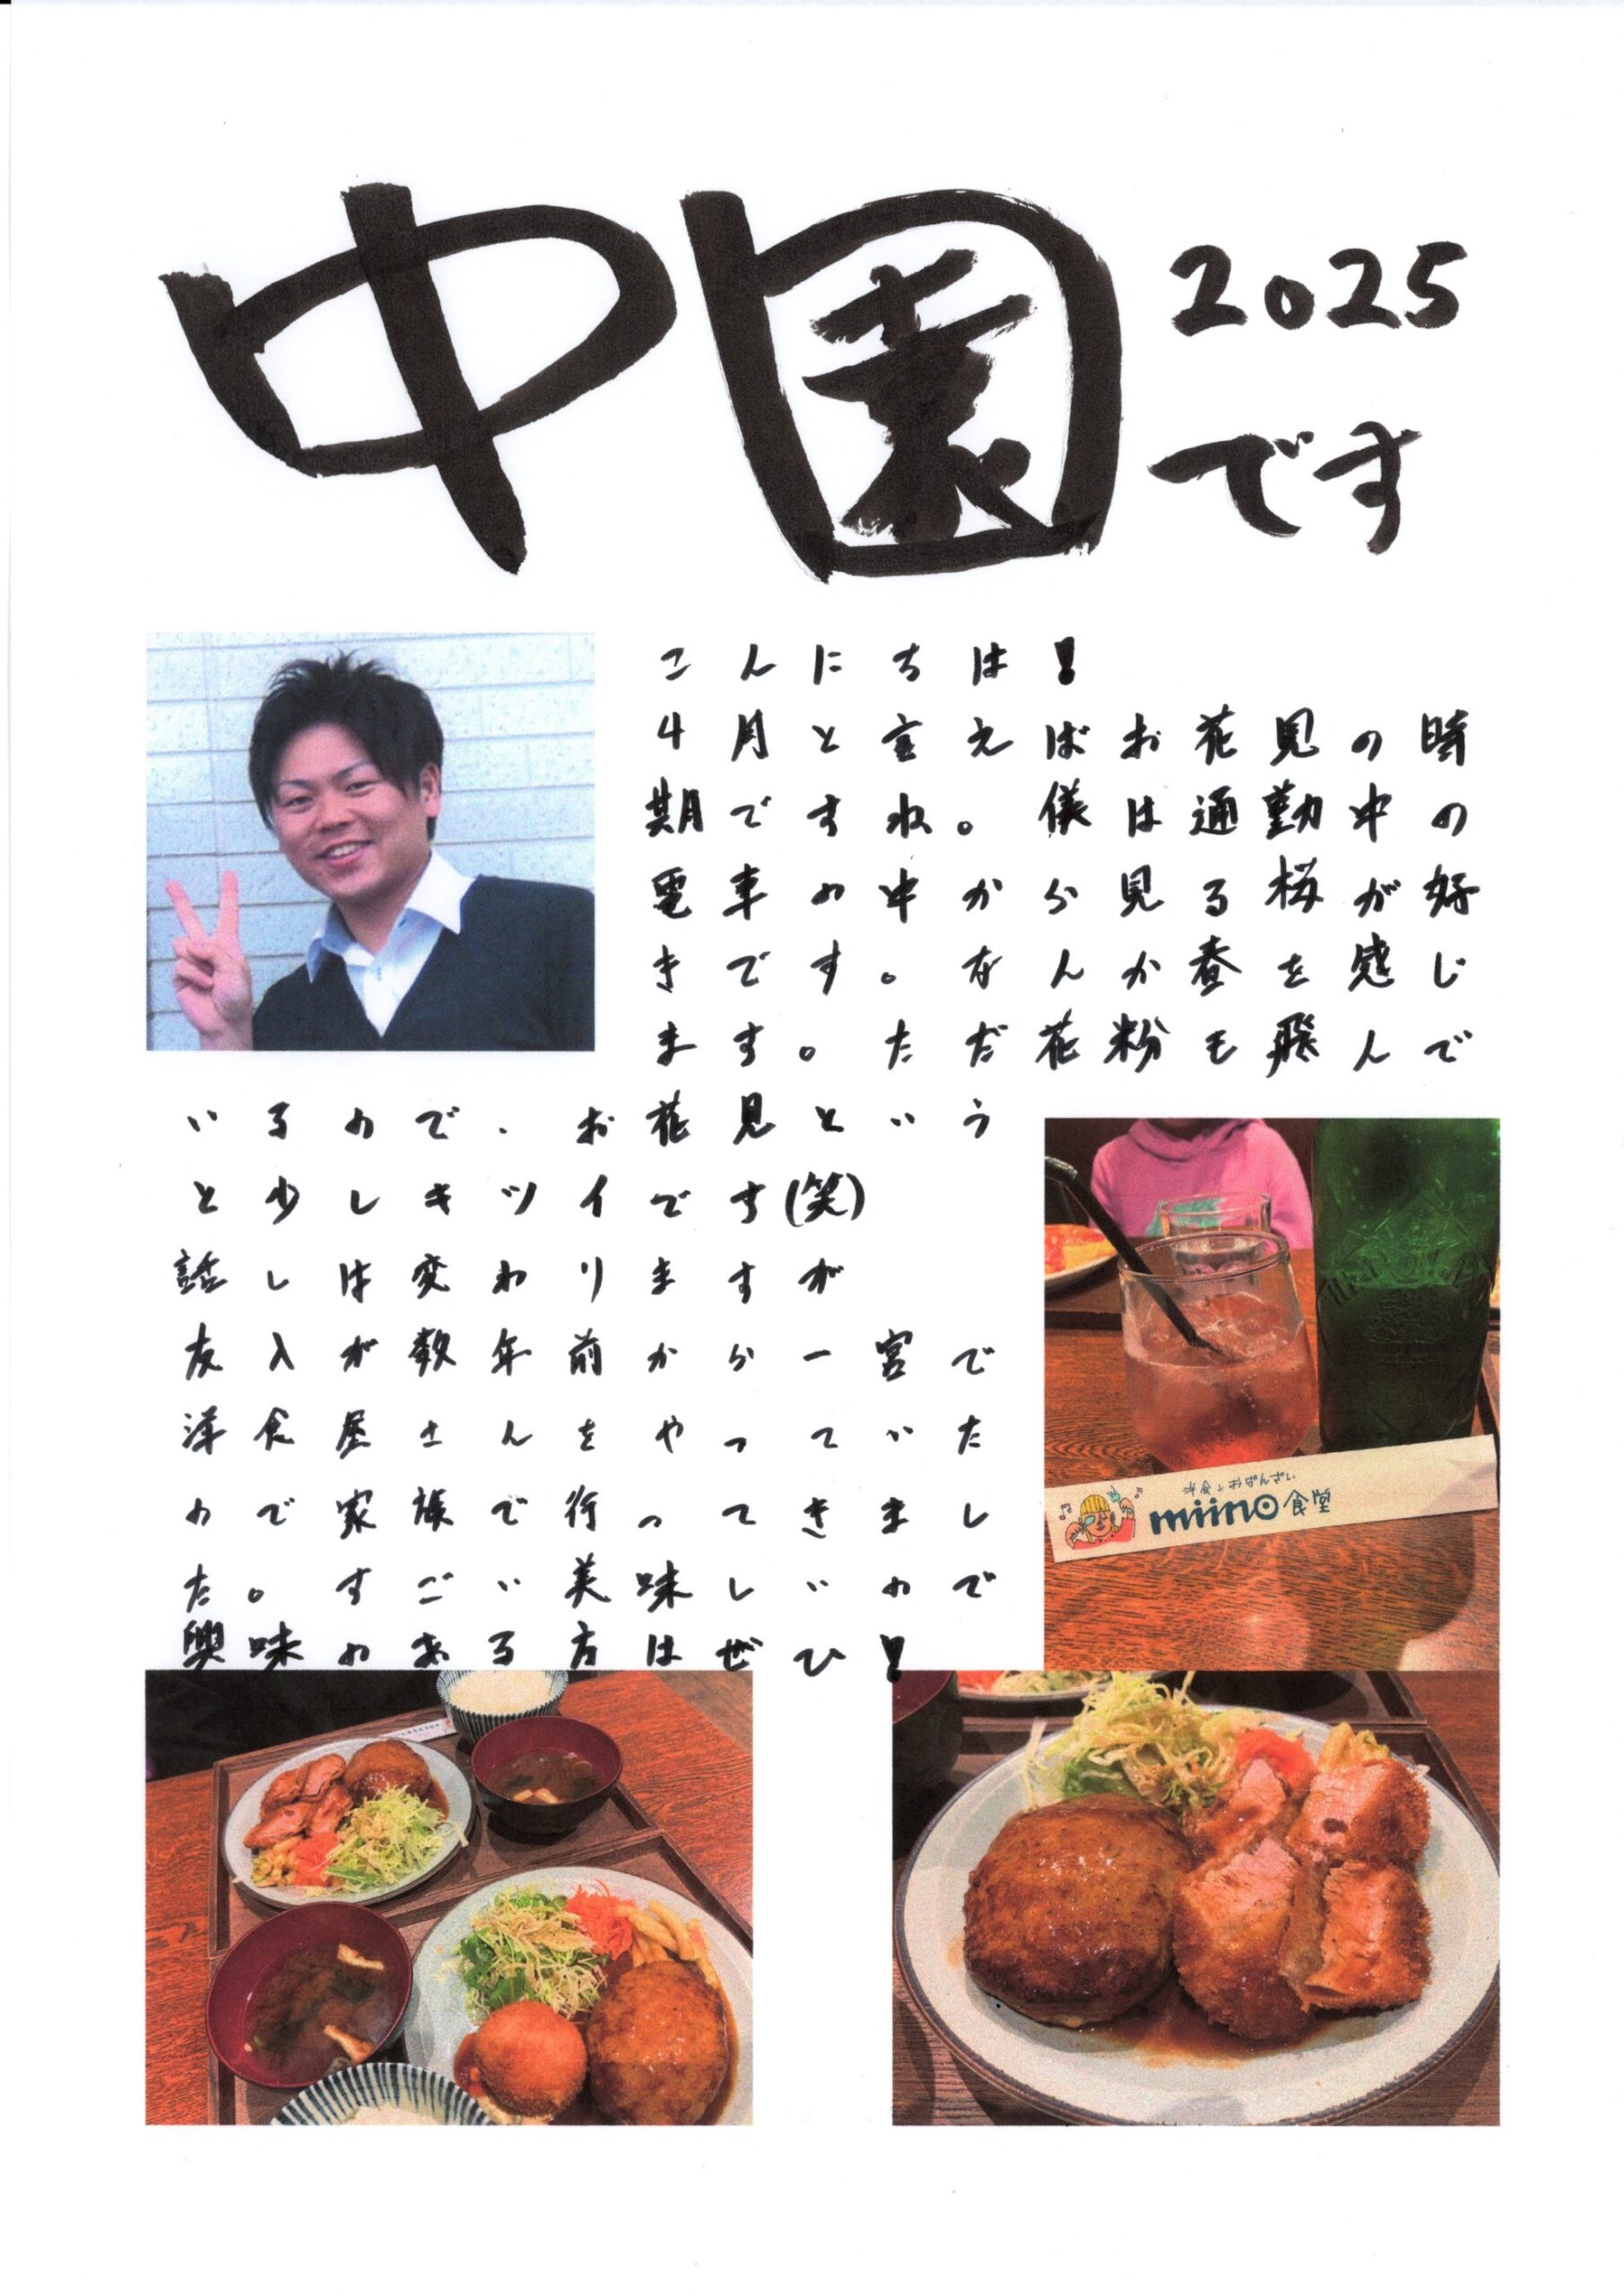 中園
2025
です
こんにちは!
4月と言えばお花見の時
期ですね。僕は通勤中の
電車の中から見る桜が好
きです。なんか春を感じ
ます。ただ花粉も飛んで
いるので、お花見という
と少しキツイです(笑)
話しは変わりますが
友人が数年前から一宮で
洋食屋さんをやっていた
ので家族で行ってきまし
た。すごい美味しいので
興味のある方はぜひ!
洋食とおばんざい
miino食堂